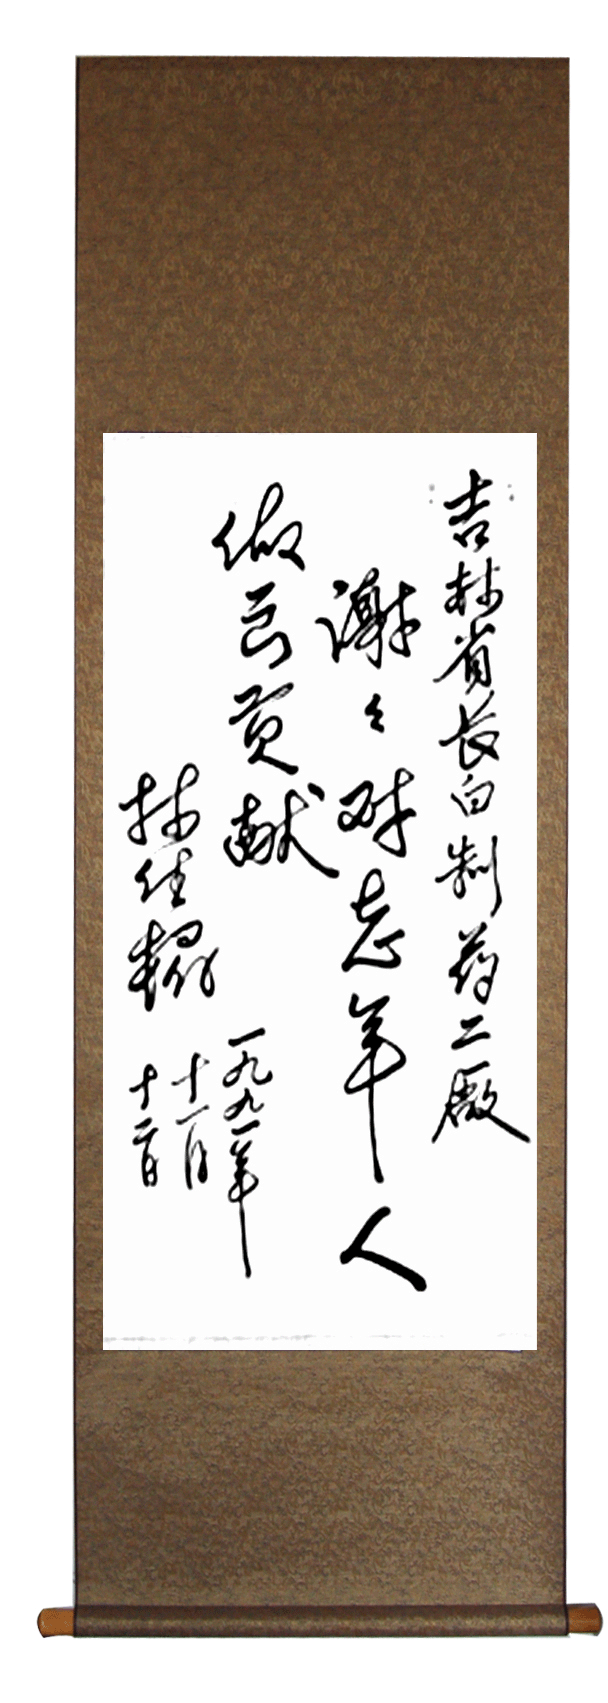 吉林省长白制药二厰
谢々对老年人
做贡献
林佳楣
一九九一年
十一月
十二日